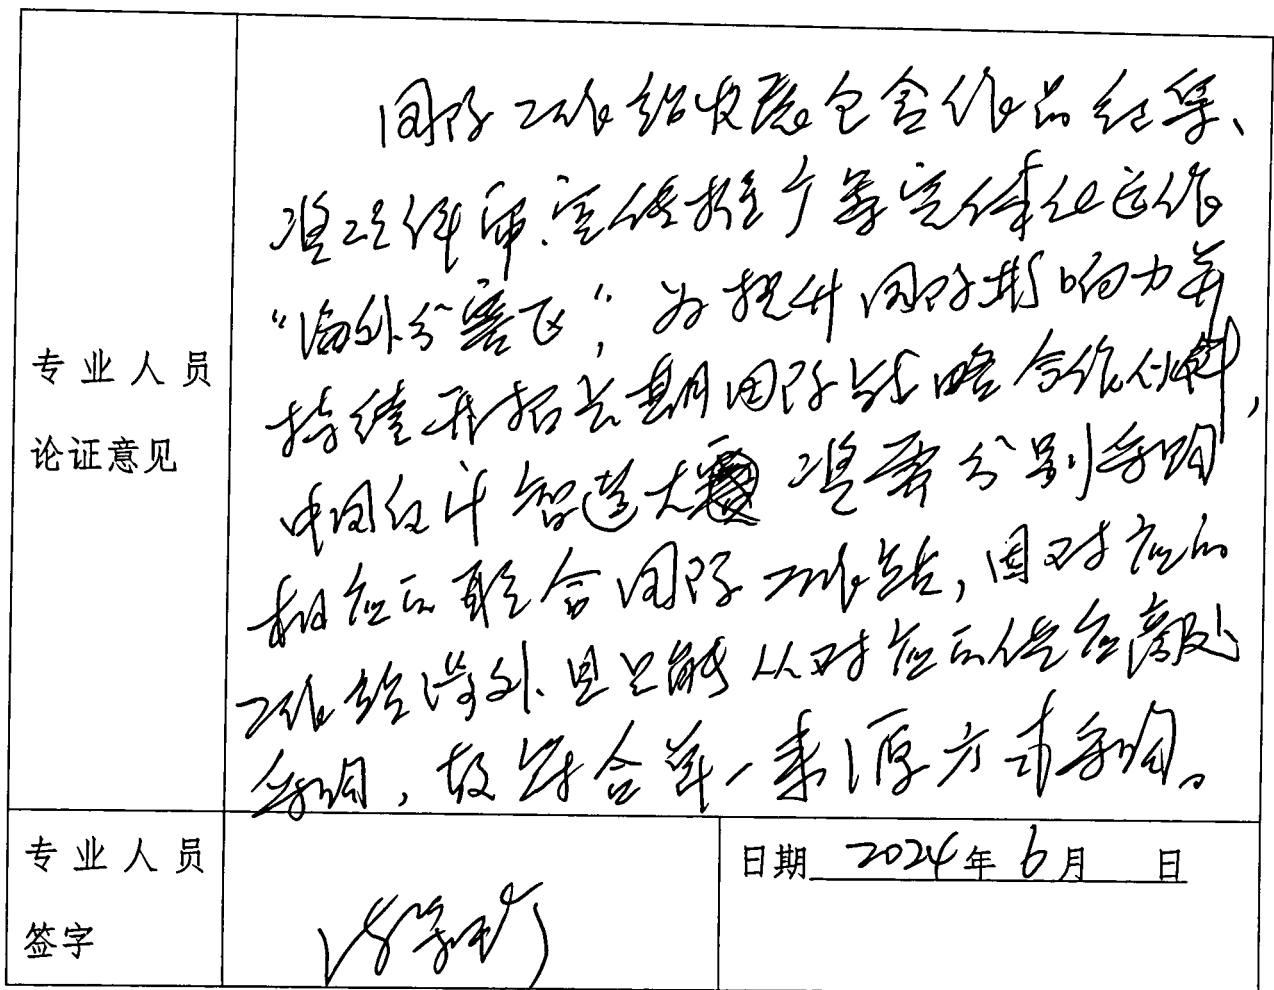 专业人员
论证意见
国际工作站收悉包含作品征集、
选送评审、宣传推广等完体化运作
“海外分赛区”，为提升国际影响力并
持续开拓长期国际战略合作伙伴，
中国设计智造大奖 选要分别采购
相应的联合国际工作站，因对应的
工作站海外 且只能从对应的供应商处
采购，故符合单一来源方式采购。
专业人员
签字
日期 2024年 6月 日